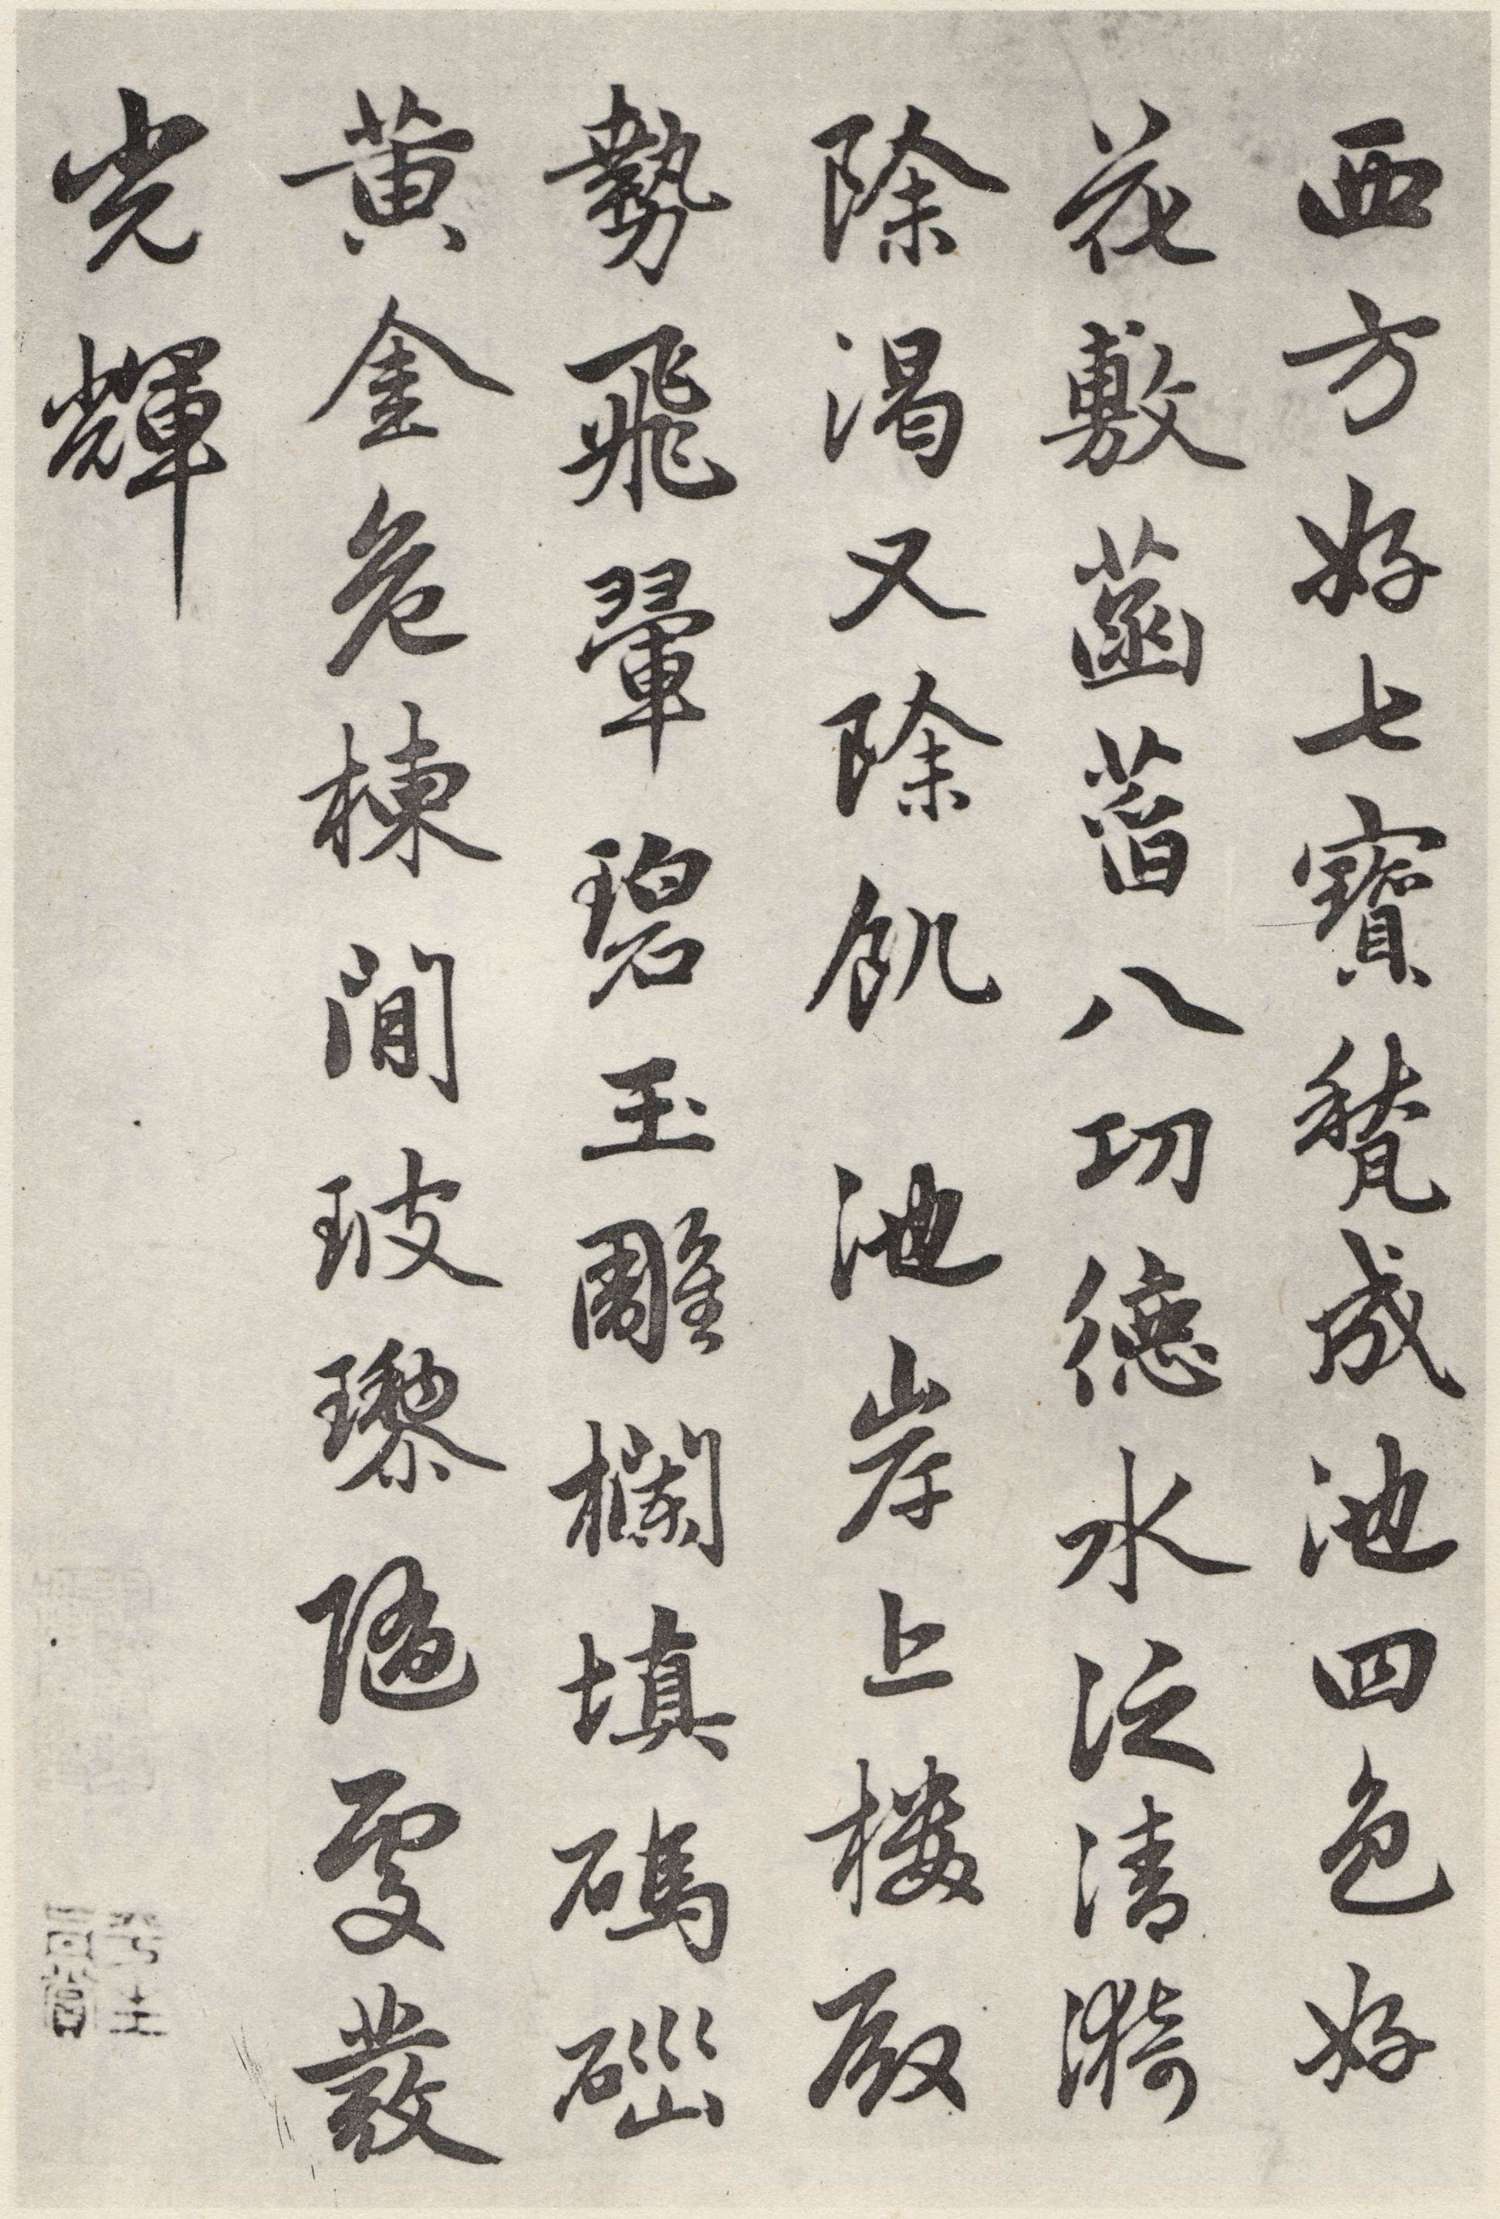 西方好七寶甃成池四色好
花敷菡萏八功德水泛清漪
除渴又除飢　池岸上樓殿
勢飛翬碧玉雕欄填碼碯
黃金危棟間玻瓈隨處發
光輝